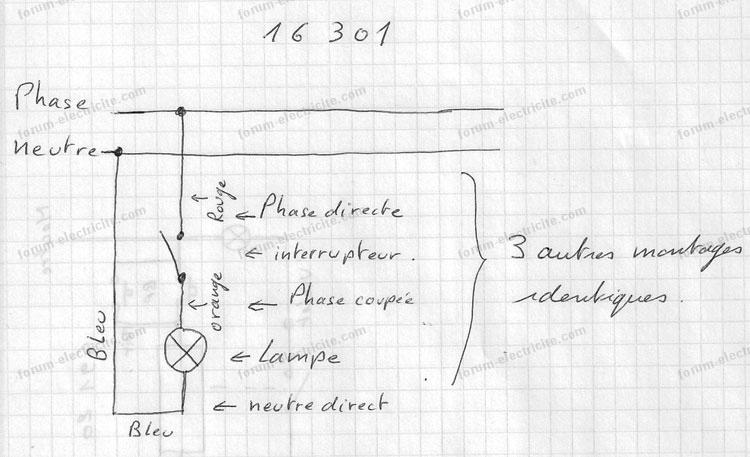 16 301
Phase
neutre
Rouge
← Phase directe
← interrupteur.
orange
← Phase coupée
← Lampe
← neutre direct
Bleu
Bleu
3 autres montages
identiques.
forum-electricite.com